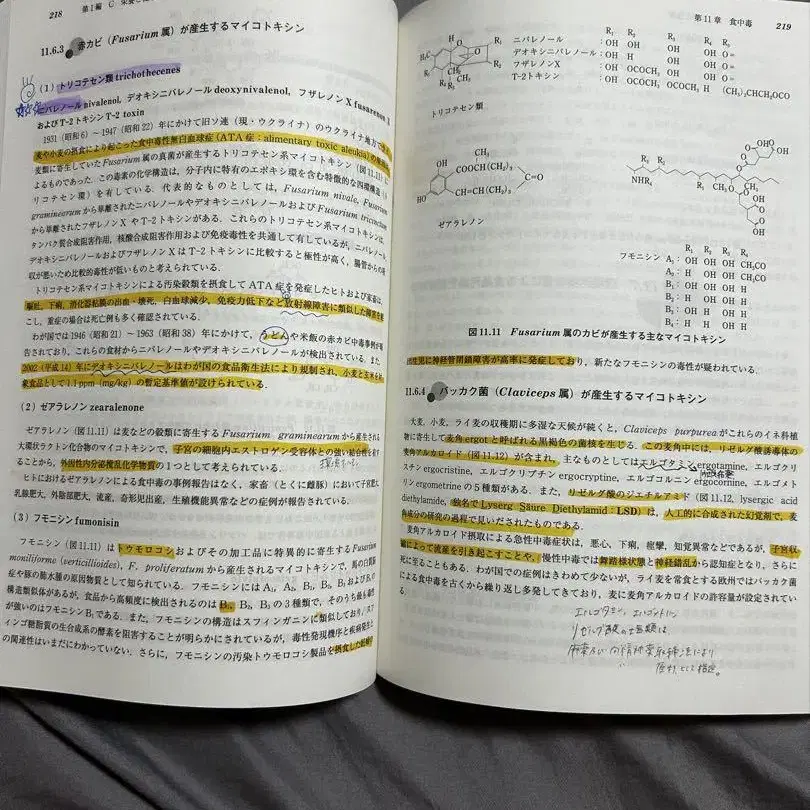 218
第1編 C
11.6.3 赤カビ（Fusarium 属）が産生するマイコトキシン
（1）トリコテセン類 trichothecenes
ニバレノール nivalenol，デオキシニバレノール deoxynivalenol，フザレノン X
および T-2 トキシン T-2 toxin
1931（昭和 6）～1947（昭和 22）年にかけて旧ソ連（現・ウクライナ）のウクライナ地方で
麦や小麦の摂食により起こった食中毒性無白血球症（ATA 症：alimentary toxic aleukia）の
麦類に寄生していた Fusarium 属の真菌が産生するトリコテセン系マイコトキシン（図 11.11）に
よるものであった．この毒素の化学構造は，分子内に特有のエポキシ環を含む特徴的な四環構造（ト
リコテセン環）を有している．代表的なものとしては，Fusarium nivale，Fusarium
graminearum から単離されたニバレノールやデオキシニバレノールおよび Fusarium tricinctum
から単離されたフザレノン X や T-2 トキシンがある．これらのトリコテセン系マイコトキシンは，
タンパク質合成阻害作用，核酸合成阻害作用および免疫毒性を共通して有しているが，ニバレノール，
デオキシニバレノールおよびフザレノン X は T-2 トキシンに比較すると極性が高く，腸管からの吸
収が悪いため比較的毒性が低いものと考えられている．
トリコテセン系マイコトキシンによる汚染穀類を摂食して ATA 症を発症したヒトおよび家畜は，
嘔吐，下痢，消化器粘膜の出血・壊死，白血球減少，免疫力低下など放射線障害に類似した障害を起
こし，重症の場合は死亡例も多く確認されている．
わが国では 1946（昭和 21）～1963（昭和 38）年にかけて，うどんや米飯の赤カビ中毒事例が報
告されており，これらの食材からニバレノールやデオキシニバレノールが検出されている．また，
2002（平成 14）年にデオキシニバレノールはわが国の食品衛生法により規制され，小麦と玄麦を対
象食品として 1.1 ppm（mg/kg）の暫定基準値が設けられている．
（2）ゼアラレノン zearalenone
ゼアラレノン（図 11.11）は麦などの穀類に寄生する Fusarium graminearum から産生される
大環状ラクトン化合物のマイコトキシンで，子宮の細胞内エストロゲン受容体との強い結合性を有す
ることから，外因性内分泌撹乱化学物質の 1 つとして考えられている．
ヒトにおけるゼアラレノンによる食中毒の事例報告はなく，家畜（とくに雌豚）において子宮と
乳腺肥大，外陰部肥大，流産，奇形児出産，生殖機能異常などの症例が報告されている．
（3）フモニシン fumonisin
フモニシン（図 11.11）は，トウモロコシおよびその加工品に特異的に寄生する Fusarium
moniliforme（verticillioides），F. proliferatum から産生されるマイコトキシンで，馬の白質脳
症や豚の肺水腫の原因物質として知られている．フモニシンには A₁，A₂，B₁，B₂，B₃ および B₄ の
構造類似体があるが，食品から高頻度に検出されるのは B₁，B₂，B₃ の 3 種類で，そのうち最も毒性
が強いのはフモニシン B₁ である．また，フモニシンの構造はスフィンガニンに類似しており，スフ
ィンゴ糖脂質の生合成系の酵素を阻害することが明らかにされているが，毒性発現機序と疾病発生と
の関連性はいまだにわかっていない．さらに，フモニシンの汚染トウモロコシ製品を摂食した妊婦の
第 11 章 食中毒 219
R₁ R₂ R₃ R₄
ニバレノール：OH OH OH O=
デオキシニバレノール：OH H OH O=
フザレノンX：OH OCOCH₃ OH O=
T-2トキシン：OH OCOCH₃ OCOCH₃ H (CH₃)₂CHCH₂OCO
トリコテセン類
ゼアラレノン
R₁ R₂ R₃ R₄
フモニシン A₁：OH OH OH CH₃CO
A₂：H OH OH CH₃CO
B₁：OH OH OH H
B₂：H OH OH H
B₃：OH OH H H
B₄：H OH H H
図 11.11 Fusarium 属のカビが産生する主なマイコトキシン
出生児に神経管閉鎖障害が高率に発症しており，新たなフモニシンの毒性が疑われている．
11.6.4 バッカク菌（Claviceps 属）が産生するマイコトキシン
大麦，小麦，ライ麦の収穫期に多湿な天候が続くと，Claviceps purpurea がこれらのイネ科植
物に寄生して麦角 ergot と呼ばれる黒褐色の菌核を生じる．この麦角中には，リゼルグ酸誘導体の
麦角アルカロイド（図 11.12）が含まれ，主なものとしてはエルゴタミン ergotamine，エルゴクリ
スチン ergocristine，エルゴクリプチン ergocryptine，エルゴコルニン ergocornine，エルゴメト
リン ergometrine の 5 種類がある．また，リゼルグ酸のジエチルアミド（図 11.12，lysergic acid
diethylamide，独名で Lyserg Säure Diethylamid：LSD）は，人工的に合成された幻覚剤で，麦
角成分の研究の過程で見いだされたものである．
麦角アルカロイド摂取による急性中毒症状は，悪心，下痢，痙攣，知覚異常などであるが，子宮収
縮によって流産を引き起こすことや，慢性中毒では舞踏様状態と神経錯乱から認知症となり，さらに
死に至ることもある．わが国での症例はきわめて少ないが，ライ麦を常食とする欧州ではバッカク菌
による食中毒を古くから繰り返し多発してきており，麦に麦角アルカロイドの許容量が設定されてい
る．
エルゴタミン，エルゴメトリン
リゼルグ酸の塩類は
麻薬及び向精神薬取締法により
原料として指定。